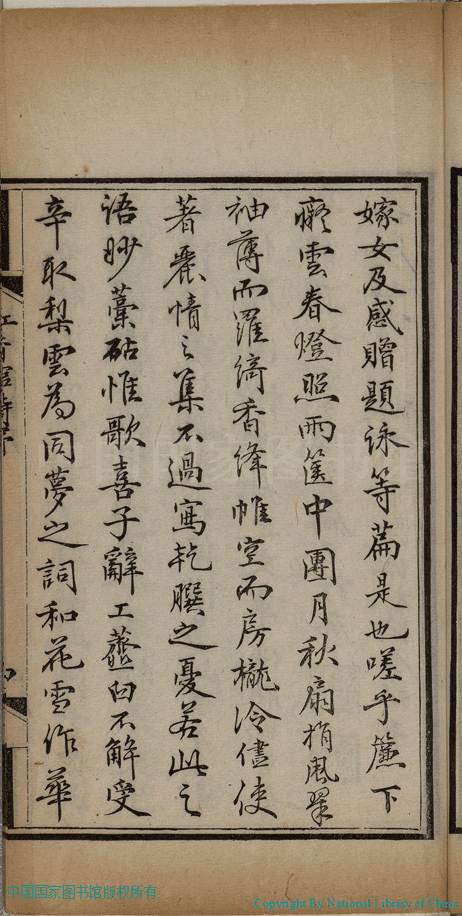 嫁女及感贈題詠等篇是也嗟乎簾下
癡雲春燈照雨篋中團月秋扇梢風翠
袖薄而羅綺香絳帷空而房櫳冷儘使
著麗情之集不過寫乾臊之憂若此之
語妙藁砧惟歌喜子辭工虀臼不解受
辛取梨雲為同夢之詞和花雪作華
中国国家图书馆版权所有
Copyright By National Library of China